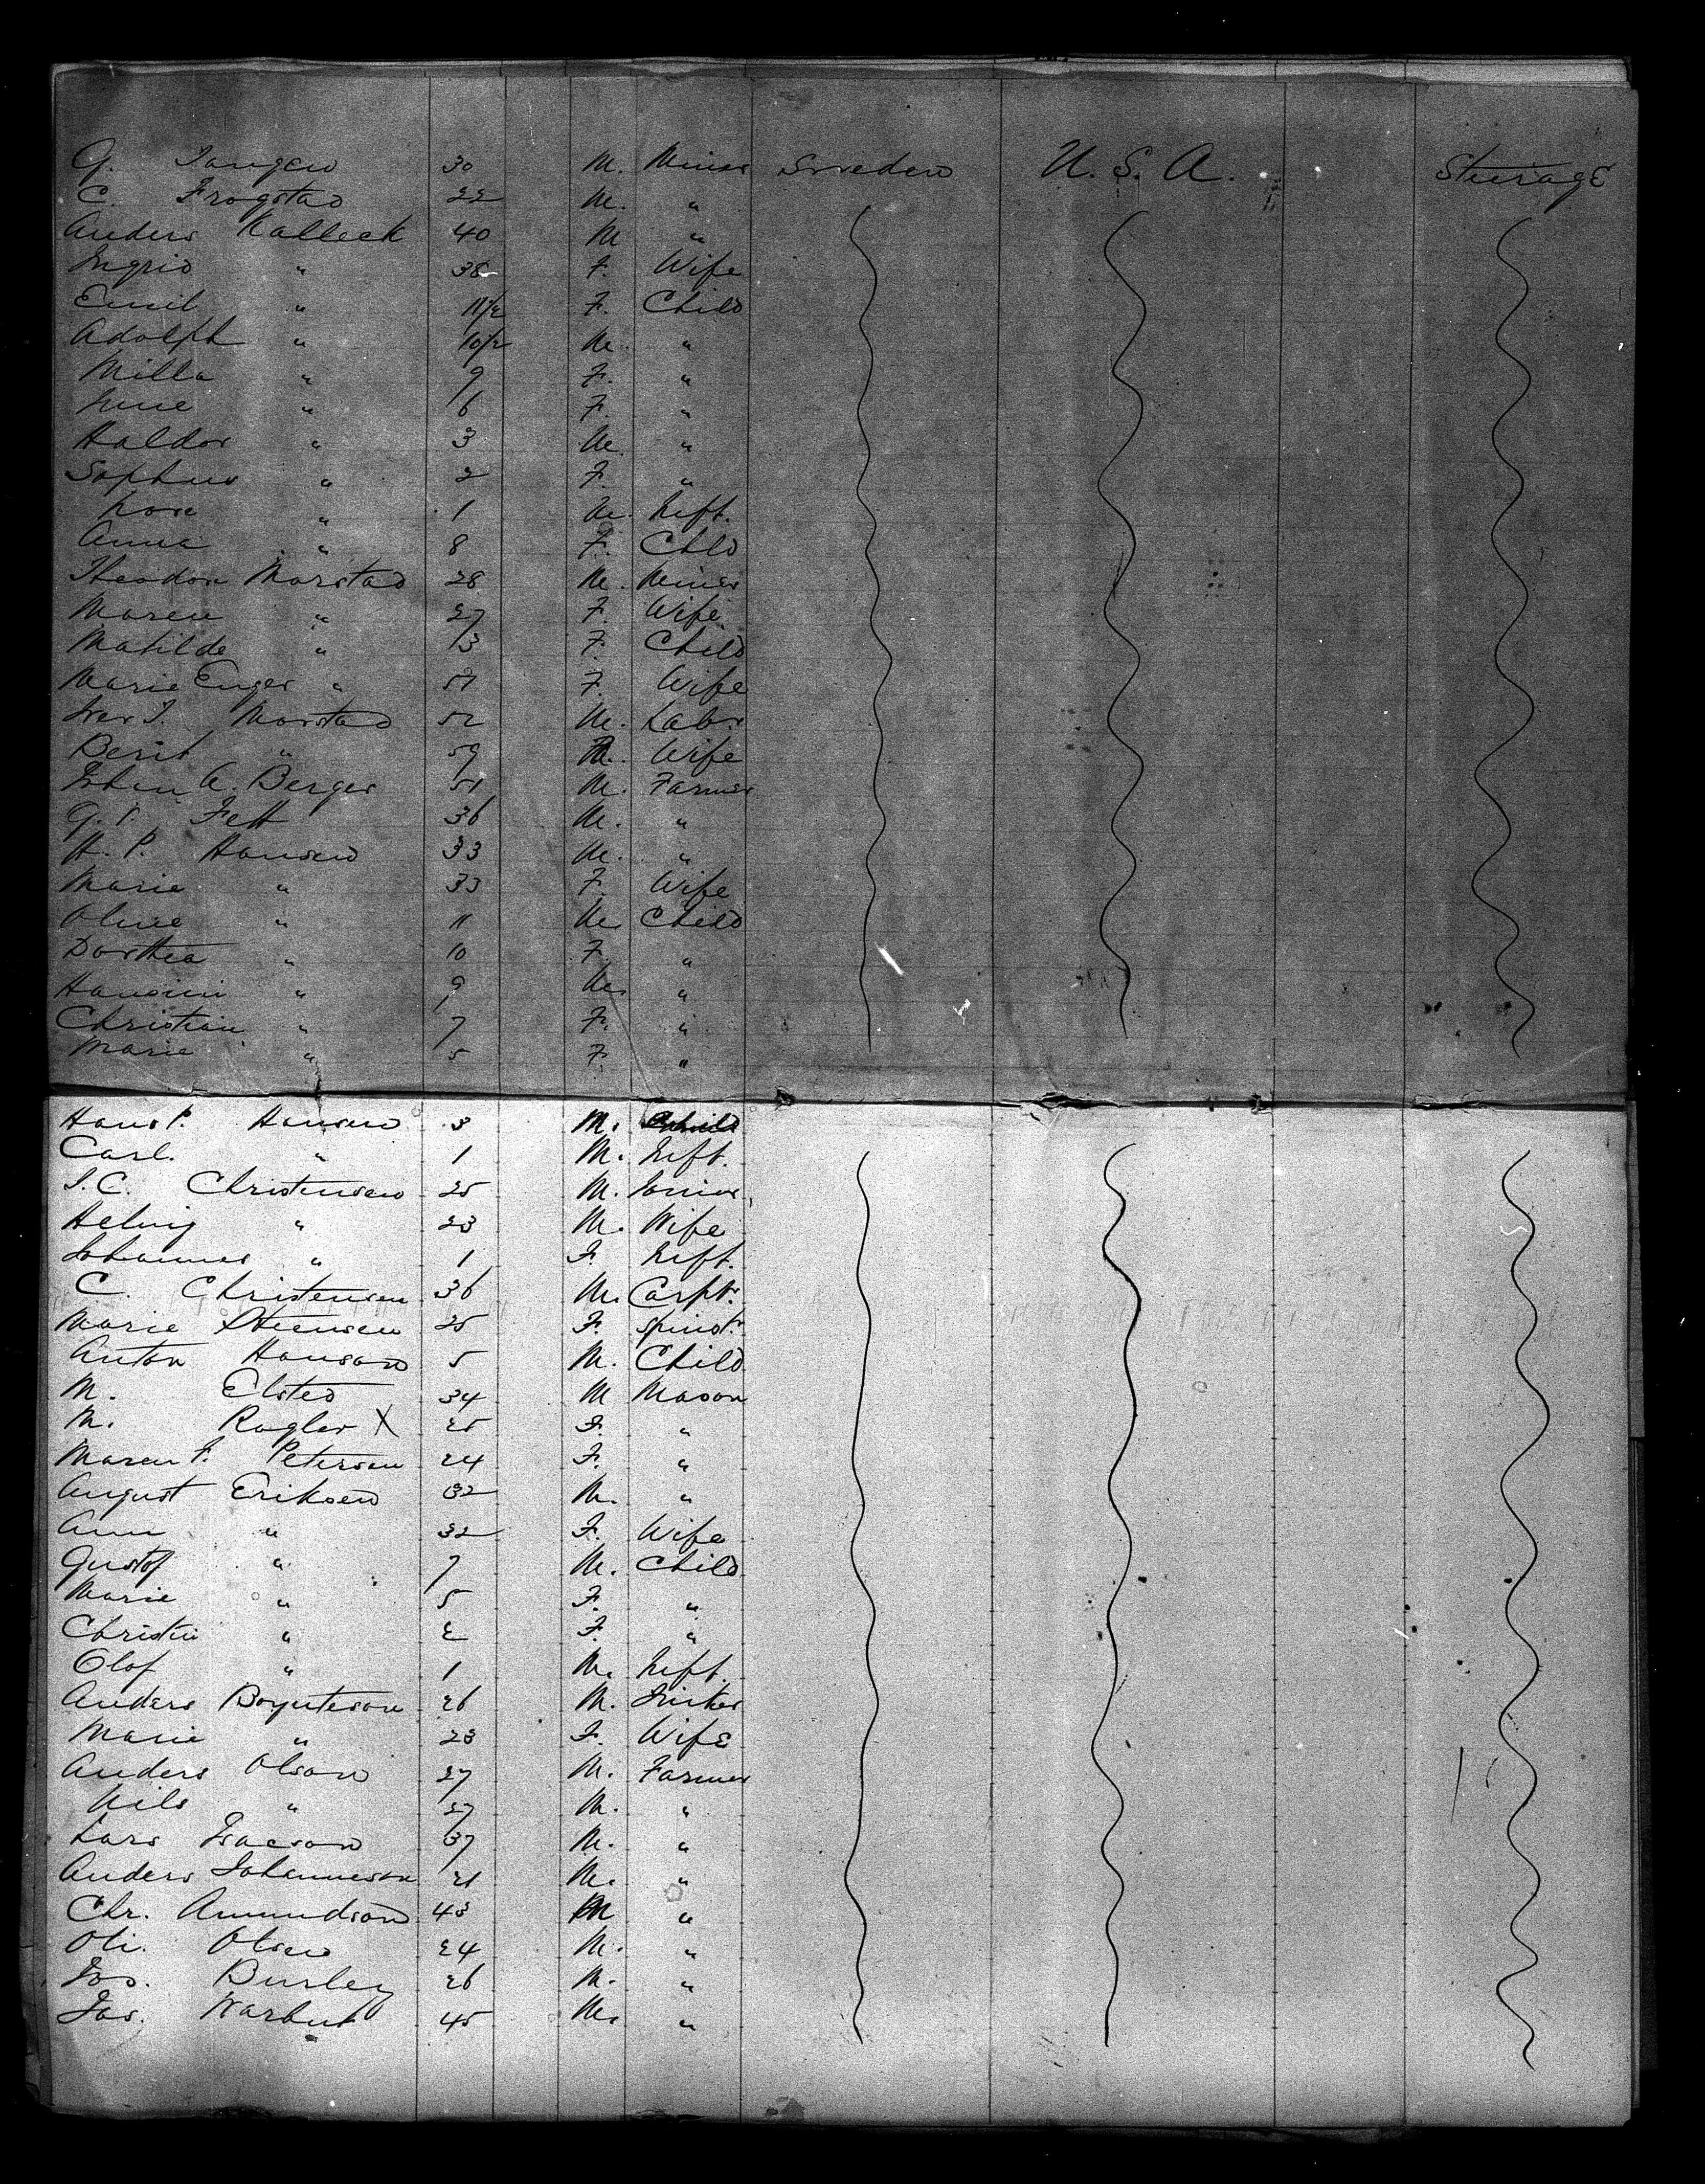 G. Tangen 30 M. Miner Sweden U. S. A. Steerage
C. Frogstad 22 M. "
Anders Kalleck 40 M "
Ingrid " 38 F. Wife
Emil " 11 1/2 F. Child
Adolph " 10 1/2 M. "
Milla " 9 F. "
" 6 F. "
Haldor " 3 M. "
Sophus " 2 F. "
" 1 M. Inft.
Anna " 8 F. Chld
Theodor Morstad 28 M. Miner
Maren " 27 F. Wife
Matilde " 13 F. Child
Marie Enger " 57 F. Wife
Iver I. Morstad 52 M. Labr
Berit " 59 M. Wife
Johan A. Berger 51 M. Farmer
G. P. Fett 36 M. "
H. P. Hansen 33 M. "
Marie " 33 F. Wife
" 11 M Child
Dorthea " 10 F. "
Hansini " 9 M. "
Christian " 7 F. "
Marie " 5 F. "
Hans P. Hansen 3 M. Child
Carl. " 1 M. Inft.
I. C. Christensen 25 M. Joiner
Helvig " 23 M. Wife
Johannes " 1 F. Inft.
C. Christensen 36 M. Carptr.
Marie Steensen 25 F. Spinstr.
Anton Hanson 5 M. Child
M. Elsted 34 M Mason
M. Rogler X 25 F. "
Maren F. Petersen 24 F. "
August Eriksen 32 M. "
Ann " 32 F. Wife
Gustof " 7 M. Child
Marie " 5 F. "
Christin " 2 F. "
Olof " 1 M. Inft.
Anders 26 M.
Marie " 23 F. Wife
Anders Olson 27 M. Farmer
Nils " 27 M. "
Lars Isacson 37 M. "
Anders Johanneson 21 M. "
Chr. Amundson 43 M "
Oli. Olsen 24 M. "
Jos. Burley 26 M. "
Jas. Warbut 45 M. "